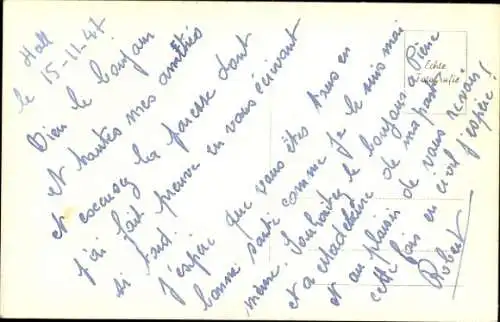 Hall
le 15-11-47
Bien le bonjour
et toutes mes amitiés
et excusez la paresse dont
j'ai fait preuve en vous écrivant
si tard.
J'espère que vous êtes tous en
bonne santé comme je le suis moi
même. Souhaitez le bonjour a Piene
et a Madeleine de ma part
et au plaisir de vous revoir
cette fois en civil j'espère!
Robert
Echte
Fotografie